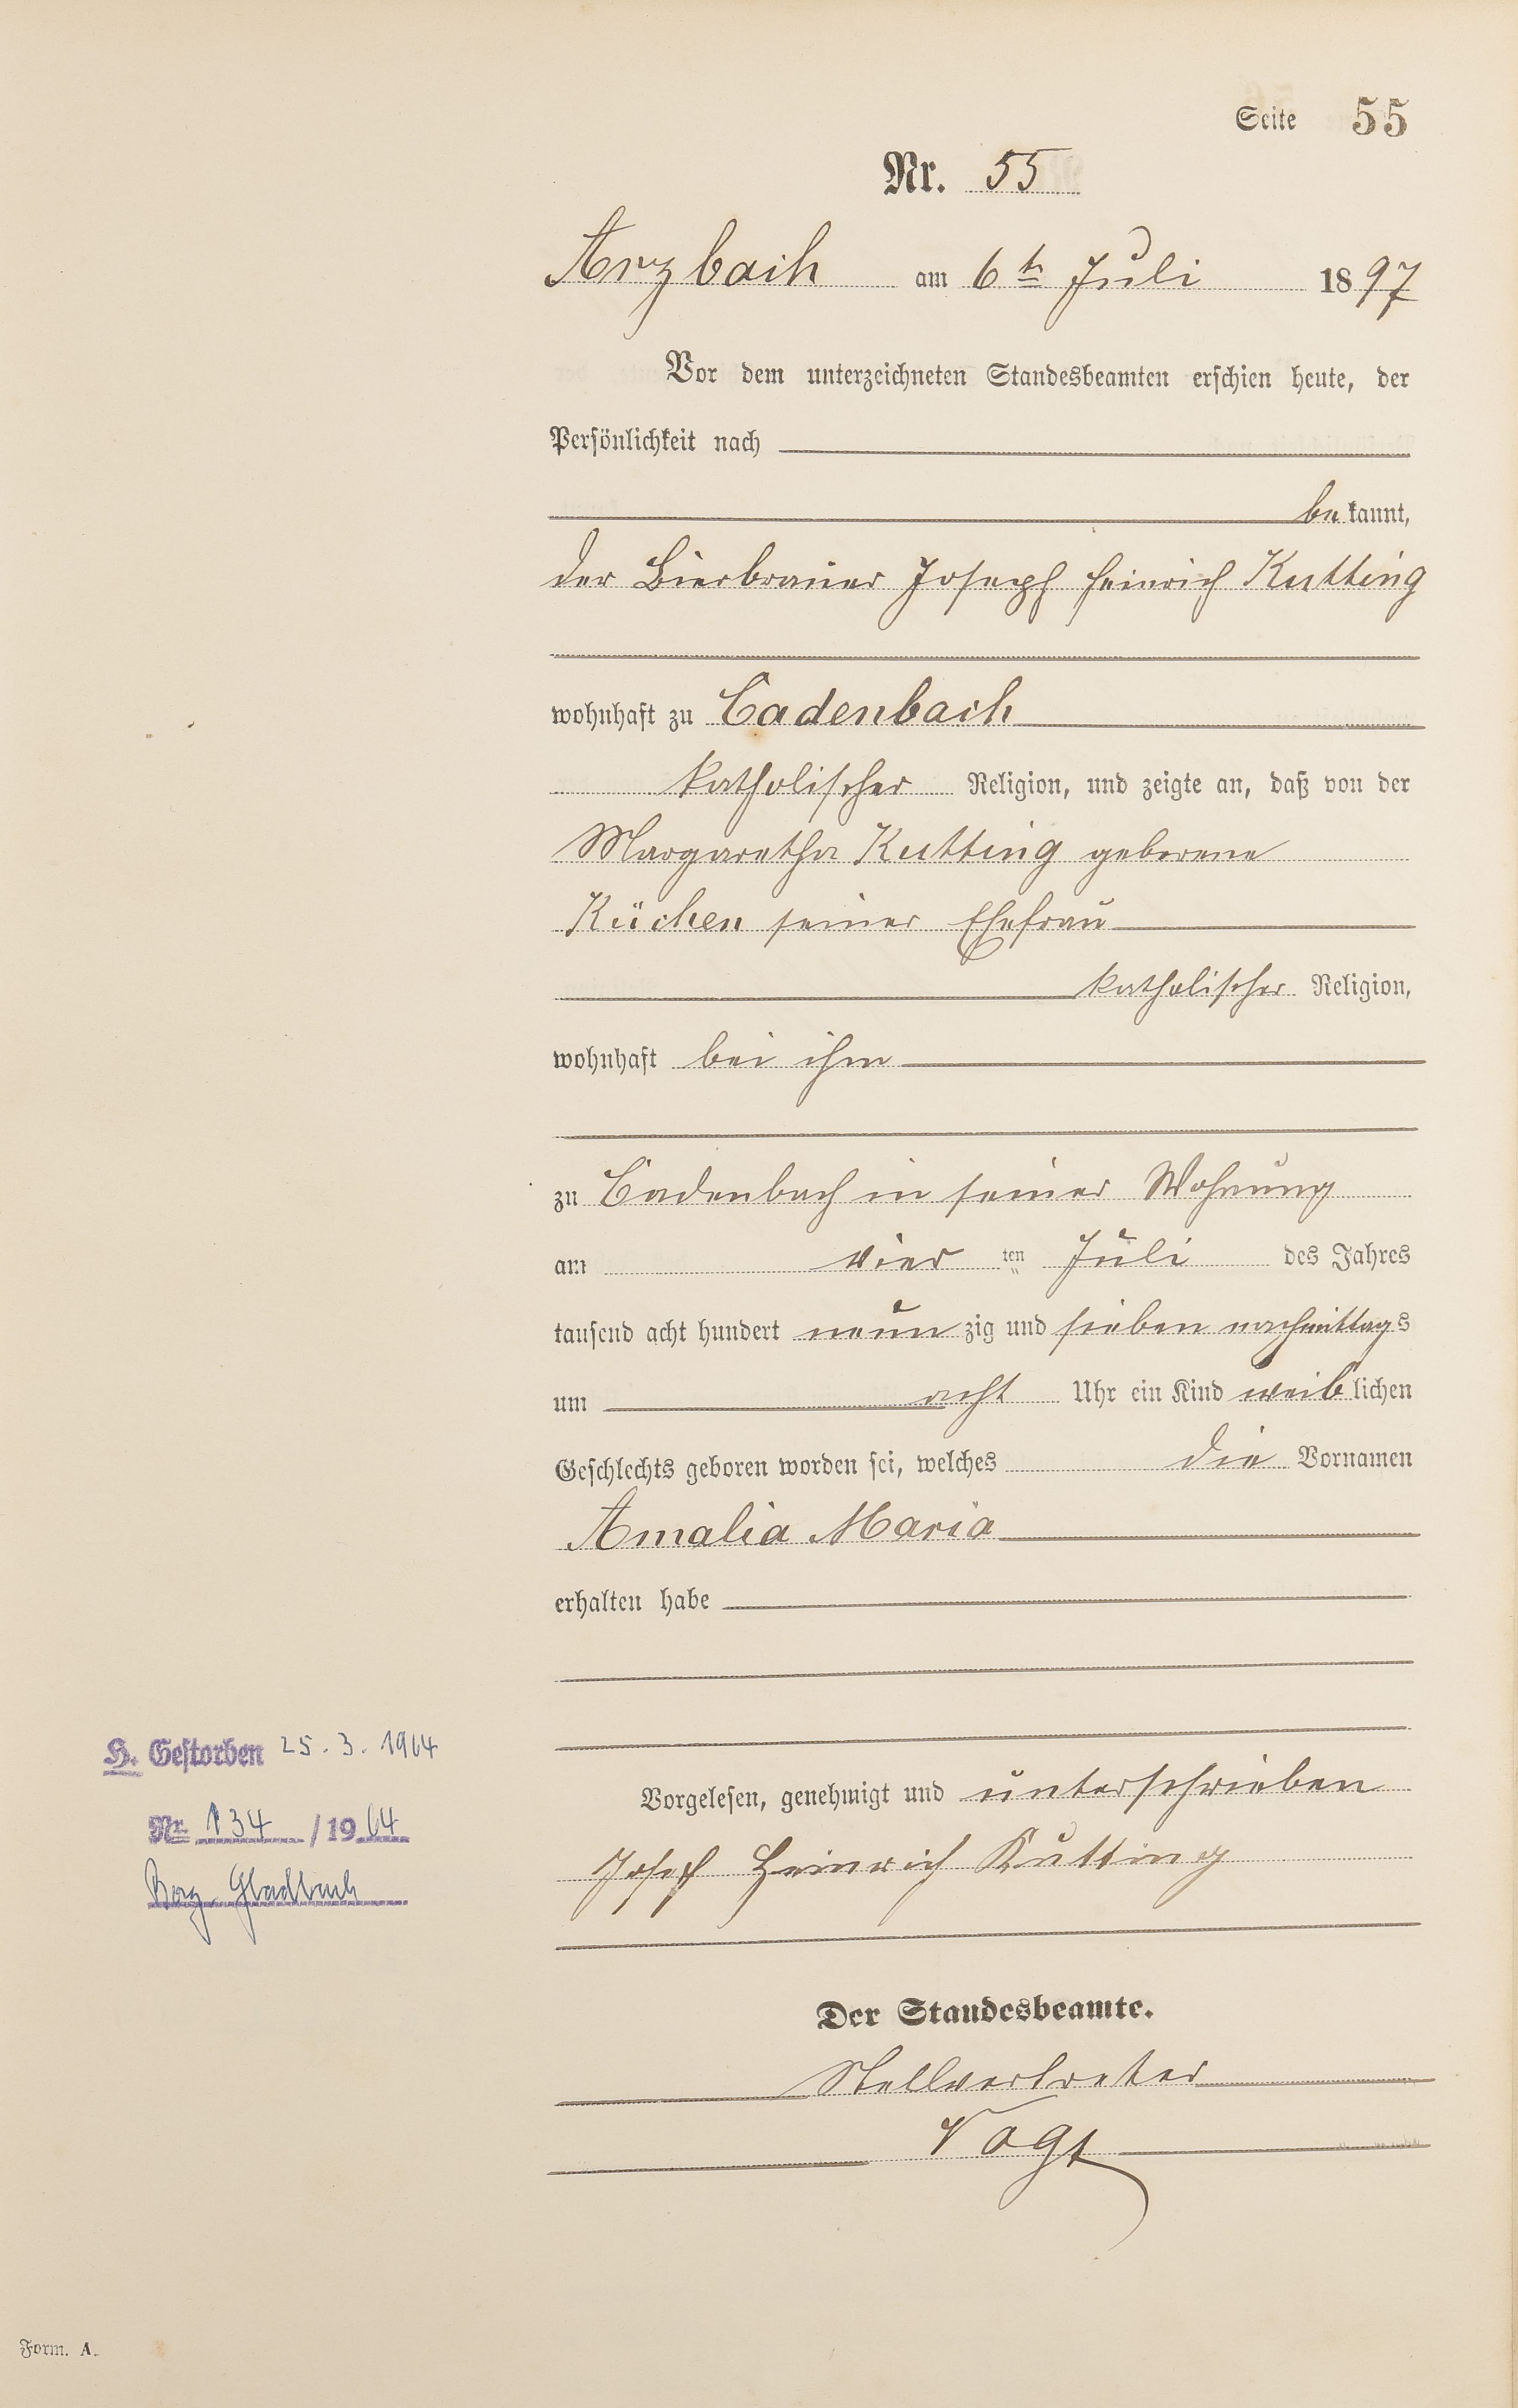 Seite 55
Nr. 55
Arzbach am 6ten Juli 1897
Vor dem unterzeichneten Standesbeamten erschien heute, der
Persönlichkeit nach
bekannt,
der Bierbrauer Joseph Heinrich Kutting
wohnhaft zu Cadenbach
katholischer Religion, und zeigte an, daß von der
Margaretha Kutting geborene
Küchen seiner Ehefrau
katholischer Religion,
wohnhaft bei ihm
zu Cadenbach in seiner Wohnung
am vierten Juli des Jahres
tausend acht hundert neunzig und sieben nachmittags
um acht Uhr ein Kind weiblichen
Geschlechts geboren worden sei, welches die Vornamen
Amalia Maria
erhalten habe
Vorgelesen, genehmigt und unterschrieben
Josef Heinrich Kutting
Der Standesbeamte.
Stellvertreter
Vogt
H. Gestorben 25.3.1964
Nr. 134 / 1964
Berg. Gladbach
Form. A.